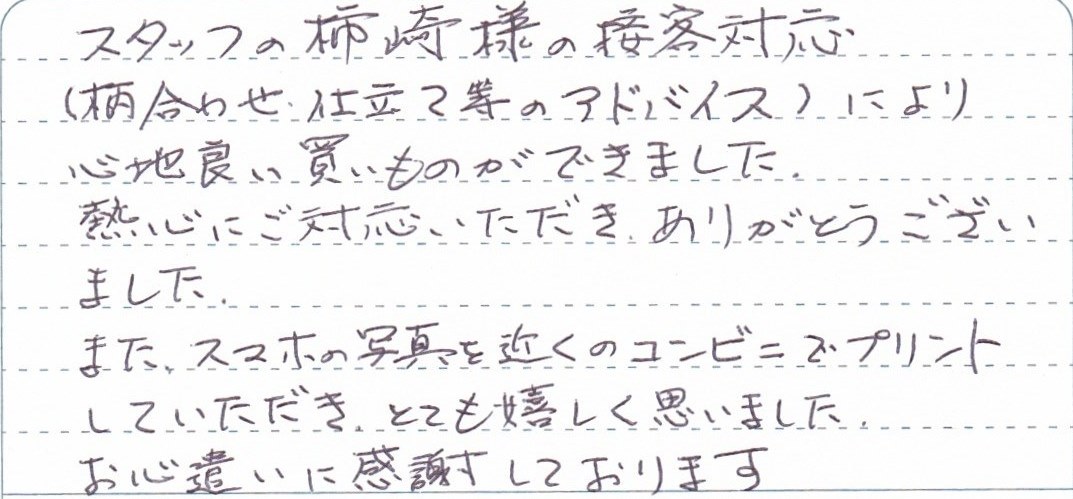 スタッフの柿崎様の接客対応
(柄合わせ、仕立て等のアドバイス)により
心地良い買いものができました。
熱心にご対応いただき、ありがとうござい
ました。
また、スマホの写真を近くのコンビニでプリント
していただき、とても嬉しく思いました。
お心遣いに感謝しております